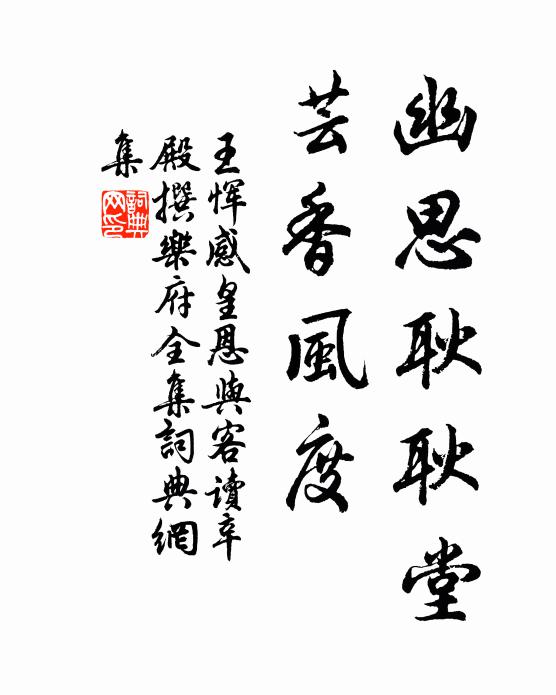 幽思耿耿堂
芸香風度
王惲感皇恩與客讀辛
殿撰樂府全集詞典網
集
詞典
网印